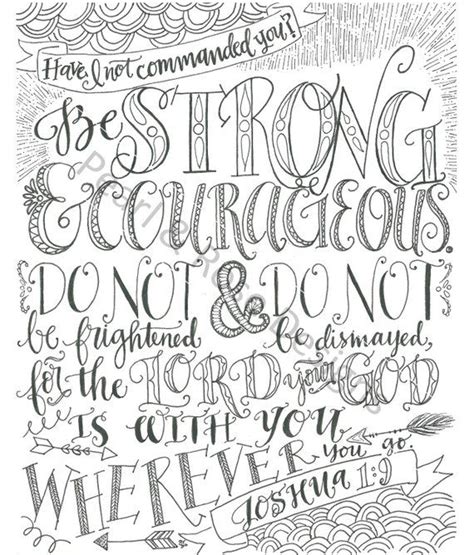 Have I not commanded you?
Be STRONG
& COURAGEOUS.
DO NOT & DO NOT
be frightened be dismayed,
for the LORD your GOD
IS WITH YOU
WHEREVER you go.
JOSHUA 1:9
Pearl & Rose Designs